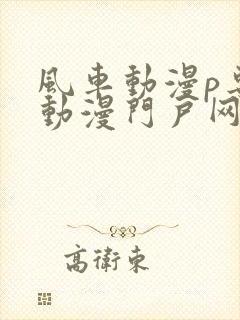 風車動漫p專
動漫門戶网
高衛東